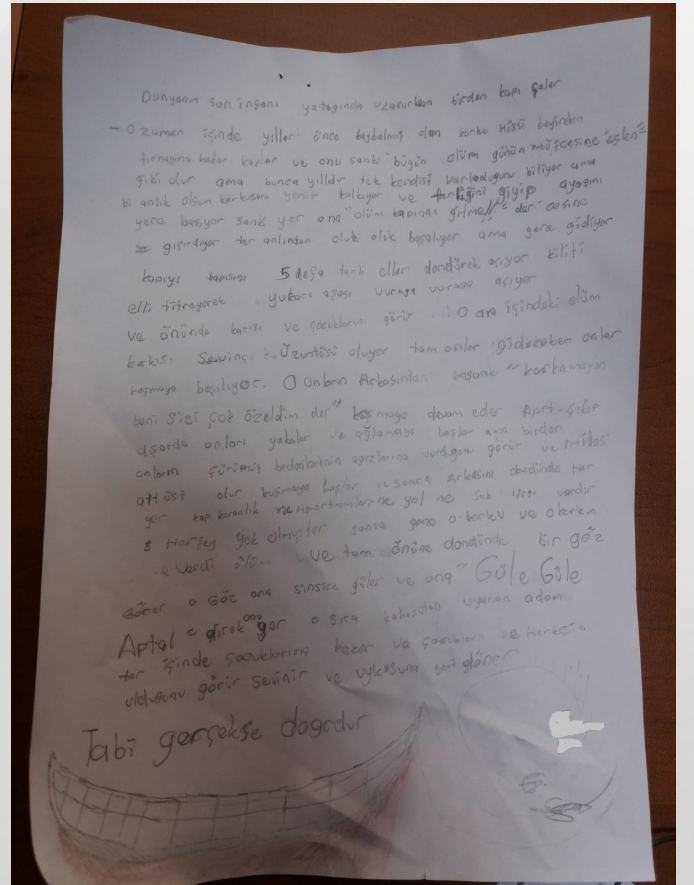 Dunyanın son insanı yatagında uzanırken birden kapı çalar
- O zaman içinde yıllar önce kaybolmuş olan korku hissi beyninden
tırnagına kadar kaplar ve onu sanki bugün ölüm günün müjdecisine
gibi olur ama bunca yıldır tek kendisi varlodugunu biliyor ama
bi anlık olsun korkusunu yenip kalkıyor ve terliğini giyip ayagını
yere basıyor sanki yer ona "ölüm kapında gitme!!" der
gışırdıyor ter anlından oluk oluk boşalıyor ama gene gidiyor
kapıyı kapısını 5 defa terli eller açıyor kiliti
elli titreyerek yukarı aşagı vuruga vuruga açıyor
ve önünde karısı ve çocuklarını görür O ara içindeki ölüm
korkusu üzüntüsü oluyor tam onlar gidecekken onlar
koşmaya başlıyor. O onların Arkasından koşarak "korkamayın
beni sizi çok özeldim der" koşmaya devam eder
dışarda onları yakalar ve ağlamaya başlar ama birden
onların çürümüş bedenlerinin agızlarına görür ve midesi
altüst olur kusmaya başlar ve sonra arkasını döndünde her
yer kap karanlık ne ne yol ne vardır
Herşey yok olmuştur sonra gene o korku ve o
vardı ölüm ve tam önüne dondünde bir göz
Görer o Göz ona sinsice güler ve ona "Güle Güle
Aptal" direk onu yer o sıra kabusdan uyanan adam
ter içinde çocuklarına bakar ve çocukları ve Herkesin
uldugunu görür sevinir ve uykusuna geri döner
Tabi gerçekse dogrdur